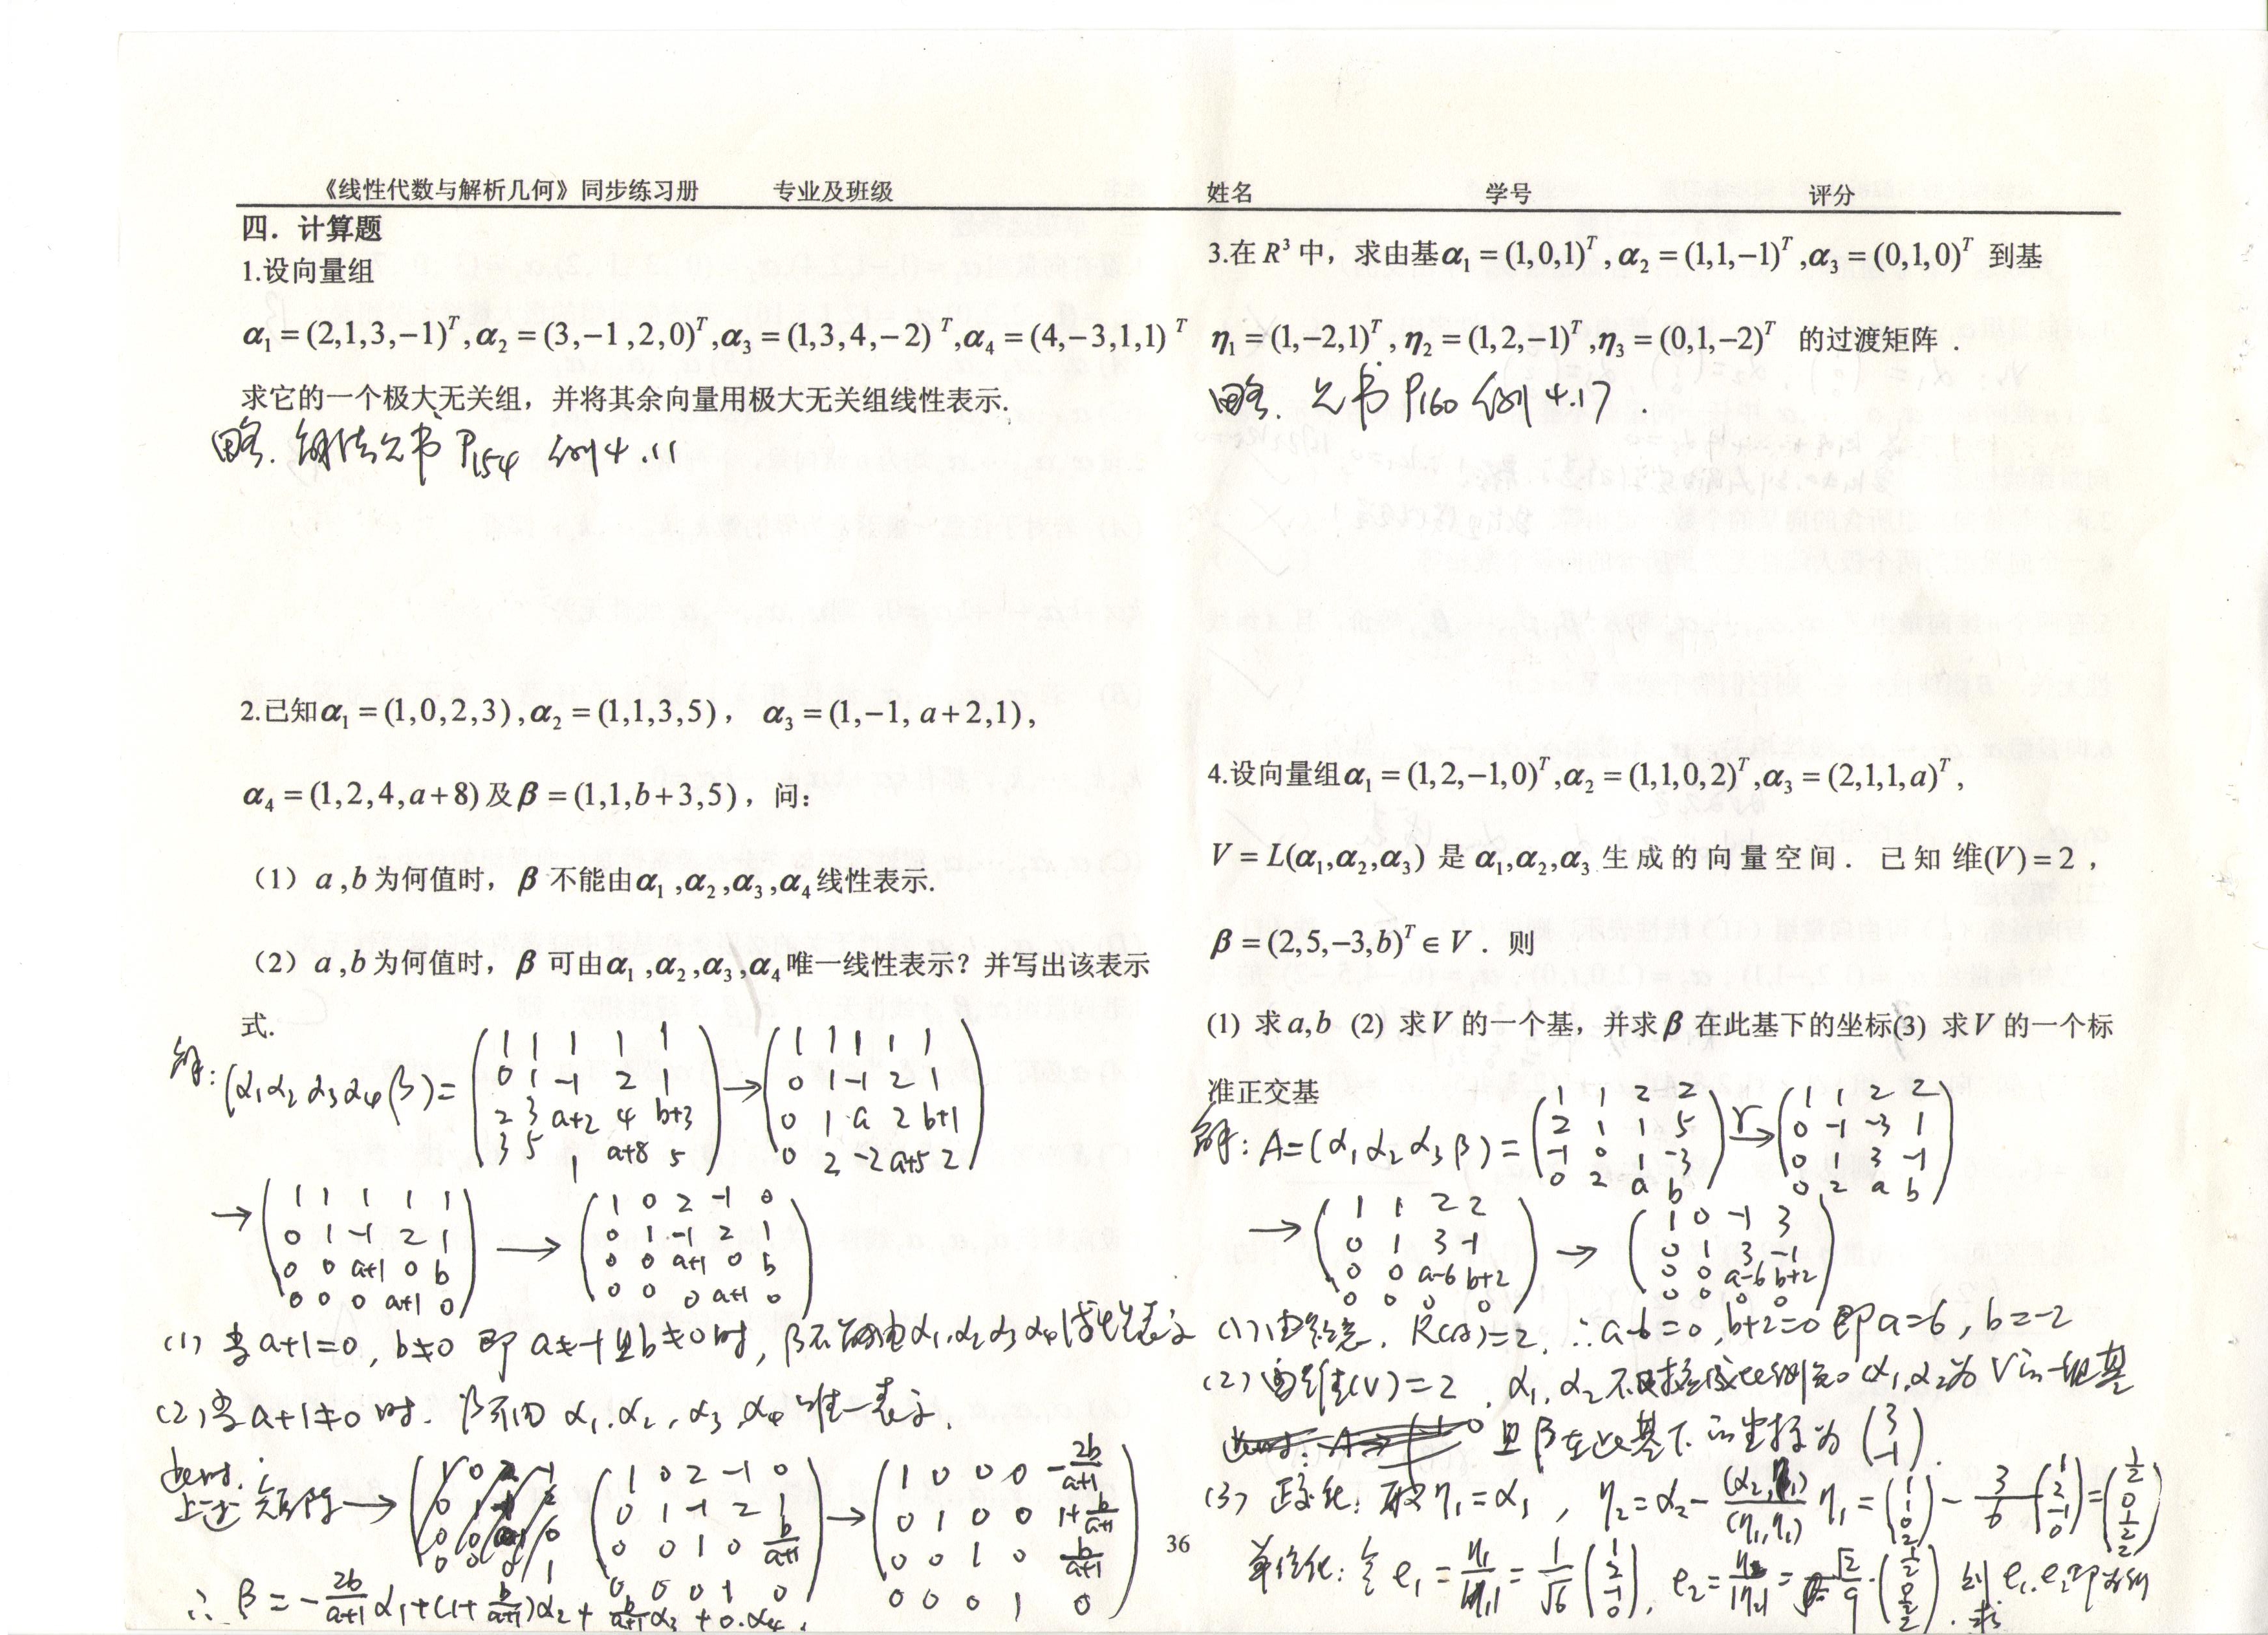 《线性代数与解析几何》同步练习册 专业及班级 姓名 学号 评分
四．计算题
1.设向量组
α₁ = (2,1,3,−1)ᵀ, α₂ = (3,−1,2,0)ᵀ, α₃ = (1,3,4,−2)ᵀ, α₄ = (4,−3,1,1)ᵀ
求它的一个极大无关组，并将其余向量用极大无关组线性表示.
略. 解法见书 P₁₅₄ 例4.11
2.已知α₁ = (1,0,2,3), α₂ = (1,1,3,5), α₃ = (1,−1, a+2,1),
α₄ = (1,2,4,a+8)及β = (1,1,b+3,5), 问:
（1）a,b为何值时，β 不能由α₁,α₂,α₃,α₄线性表示.
（2）a,b为何值时，β 可由α₁,α₂,α₃,α₄唯一线性表示？并写出该表示
式.
解: (α₁ α₂ α₃ α₄ β) = (1 1 1 1 1; 0 1 -1 2 1; 2 3 a+2 4 b+3; 3 5 1 a+8 5) → (1 1 1 1 1; 0 1 -1 2 1; 0 1 a 2 b+1; 0 2 -2 a+5 2)
→ (1 1 1 1 1; 0 1 -1 2 1; 0 0 a+1 0 b; 0 0 0 a+1 0) → (1 0 2 -1 0; 0 1 -1 2 1; 0 0 a+1 0 b; 0 0 0 a+1 0)
(1) 当 a+1=0, b≠0 即 a≠-1 且 b≠0 时, β不能由α₁,α₂ α₃ α₄ 线性表示
(2) 当 a+1≠0 时. β可由 α₁.α₂,α₃,α₄ 唯一表示.
此时. 上述矩阵 → (1 0 2 -1 0; 0 1 -1 2 1; 0 0 1 0 b/(a+1); 0 0 0 1 0) → (1 0 0 0 -2b/(a+1); 0 1 0 0 1+b/(a+1); 0 0 1 0 b/(a+1); 0 0 0 1 0)
∴ β = -2b/(a+1) α₁ + (1+b/(a+1))α₂ + b/(a+1) α₃ + 0·α₄.
3.在R³中，求由基α₁ = (1,0,1)ᵀ, α₂ = (1,1,−1)ᵀ, α₃ = (0,1,0)ᵀ 到基
η₁ = (1,−2,1)ᵀ, η₂ = (1,2,−1)ᵀ, η₃ = (0,1,−2)ᵀ 的过渡矩阵．
略. 见书 P₁₆₀ 例4.17.
4.设向量组α₁ = (1,2,−1,0)ᵀ, α₂ = (1,1,0,2)ᵀ, α₃ = (2,1,1,a)ᵀ,
V = L(α₁,α₂,α₃) 是 α₁,α₂,α₃ 生成的向量空间．已知 维(V) = 2，
β = (2,5,−3,b)ᵀ ∈ V．则
(1) 求a,b (2) 求V 的一个基，并求β 在此基下的坐标(3) 求V 的一个标
准正交基
解: A=(α₁ α₂ α₃ β) = (1 1 2 2; 2 1 1 5; -1 0 1 -3; 0 2 a b) r→ (1 1 2 2; 0 -1 -3 1; 0 1 3 -1; 0 2 a b)
→ (1 1 2 2; 0 1 3 -1; 0 0 a-6 b+2; 0 0 0 0) → (1 0 -1 3; 0 1 3 -1; 0 0 a-6 b+2; 0 0 0 0)
(1) 由题意, R(A)=2, ∴ a-6=0, b+2=0 即 a=6, b=-2
(2) 由维(V)=2, α₁,α₂ 不对应成比例知 α₁,α₂为 V的一组基
且β在此基下的坐标为 (3; -1).
(3) 正交化: 取 η₁=α₁, η₂=α₂ - (α₂,η₁)/(η₁,η₁) η₁ = (1; 1; 0; 2) - 3/6 (1; 2; -1; 0) = (1/2; 0; 1/2; 2)
单位化: 令 e₁ = η₁/|η₁| = 1/√6 (1; 2; -1; 0), e₂ = η₂/|η₂| = √2/9 · (1/2; 0; 1/2; 2). 则 e₁.e₂即为所求
36